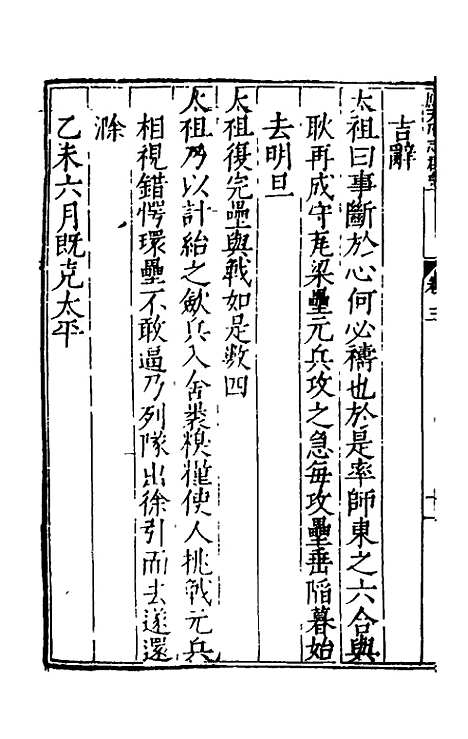 吉辭
太祖曰事斷於心何必禱也於是率師東之六合與
耿再成守瓦梁壘元兵攻之急每攻壘垂陷暮始
去明旦
太祖復完壘與戰如是數四
太祖乃以計紿之歛兵入舍裝糗糧使人挑戰元兵
相視錯愕環壘不敢逼乃列隊出徐引而去遂還
滁
乙未六月既克太平
卷三